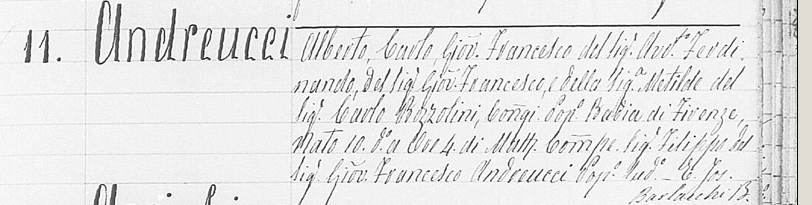 11. Andreucci Alberto, Carlo, Giov. Francesco del Sig.r Avv.o Ferdi-
nando, del Sig.r Giov. Francesco, e della Sig.a Metilde del
Sig.r Carlo Bozzolini, Congi. Pop.o Badia di Firenze,
Nato 10. d.o a Ore 4. di Matt. Compe. Sig.r Filippo del
Sig.r Giov. Francesco Andreucci Pop.o Sud.o — E. Jos.
Barlacchi B.